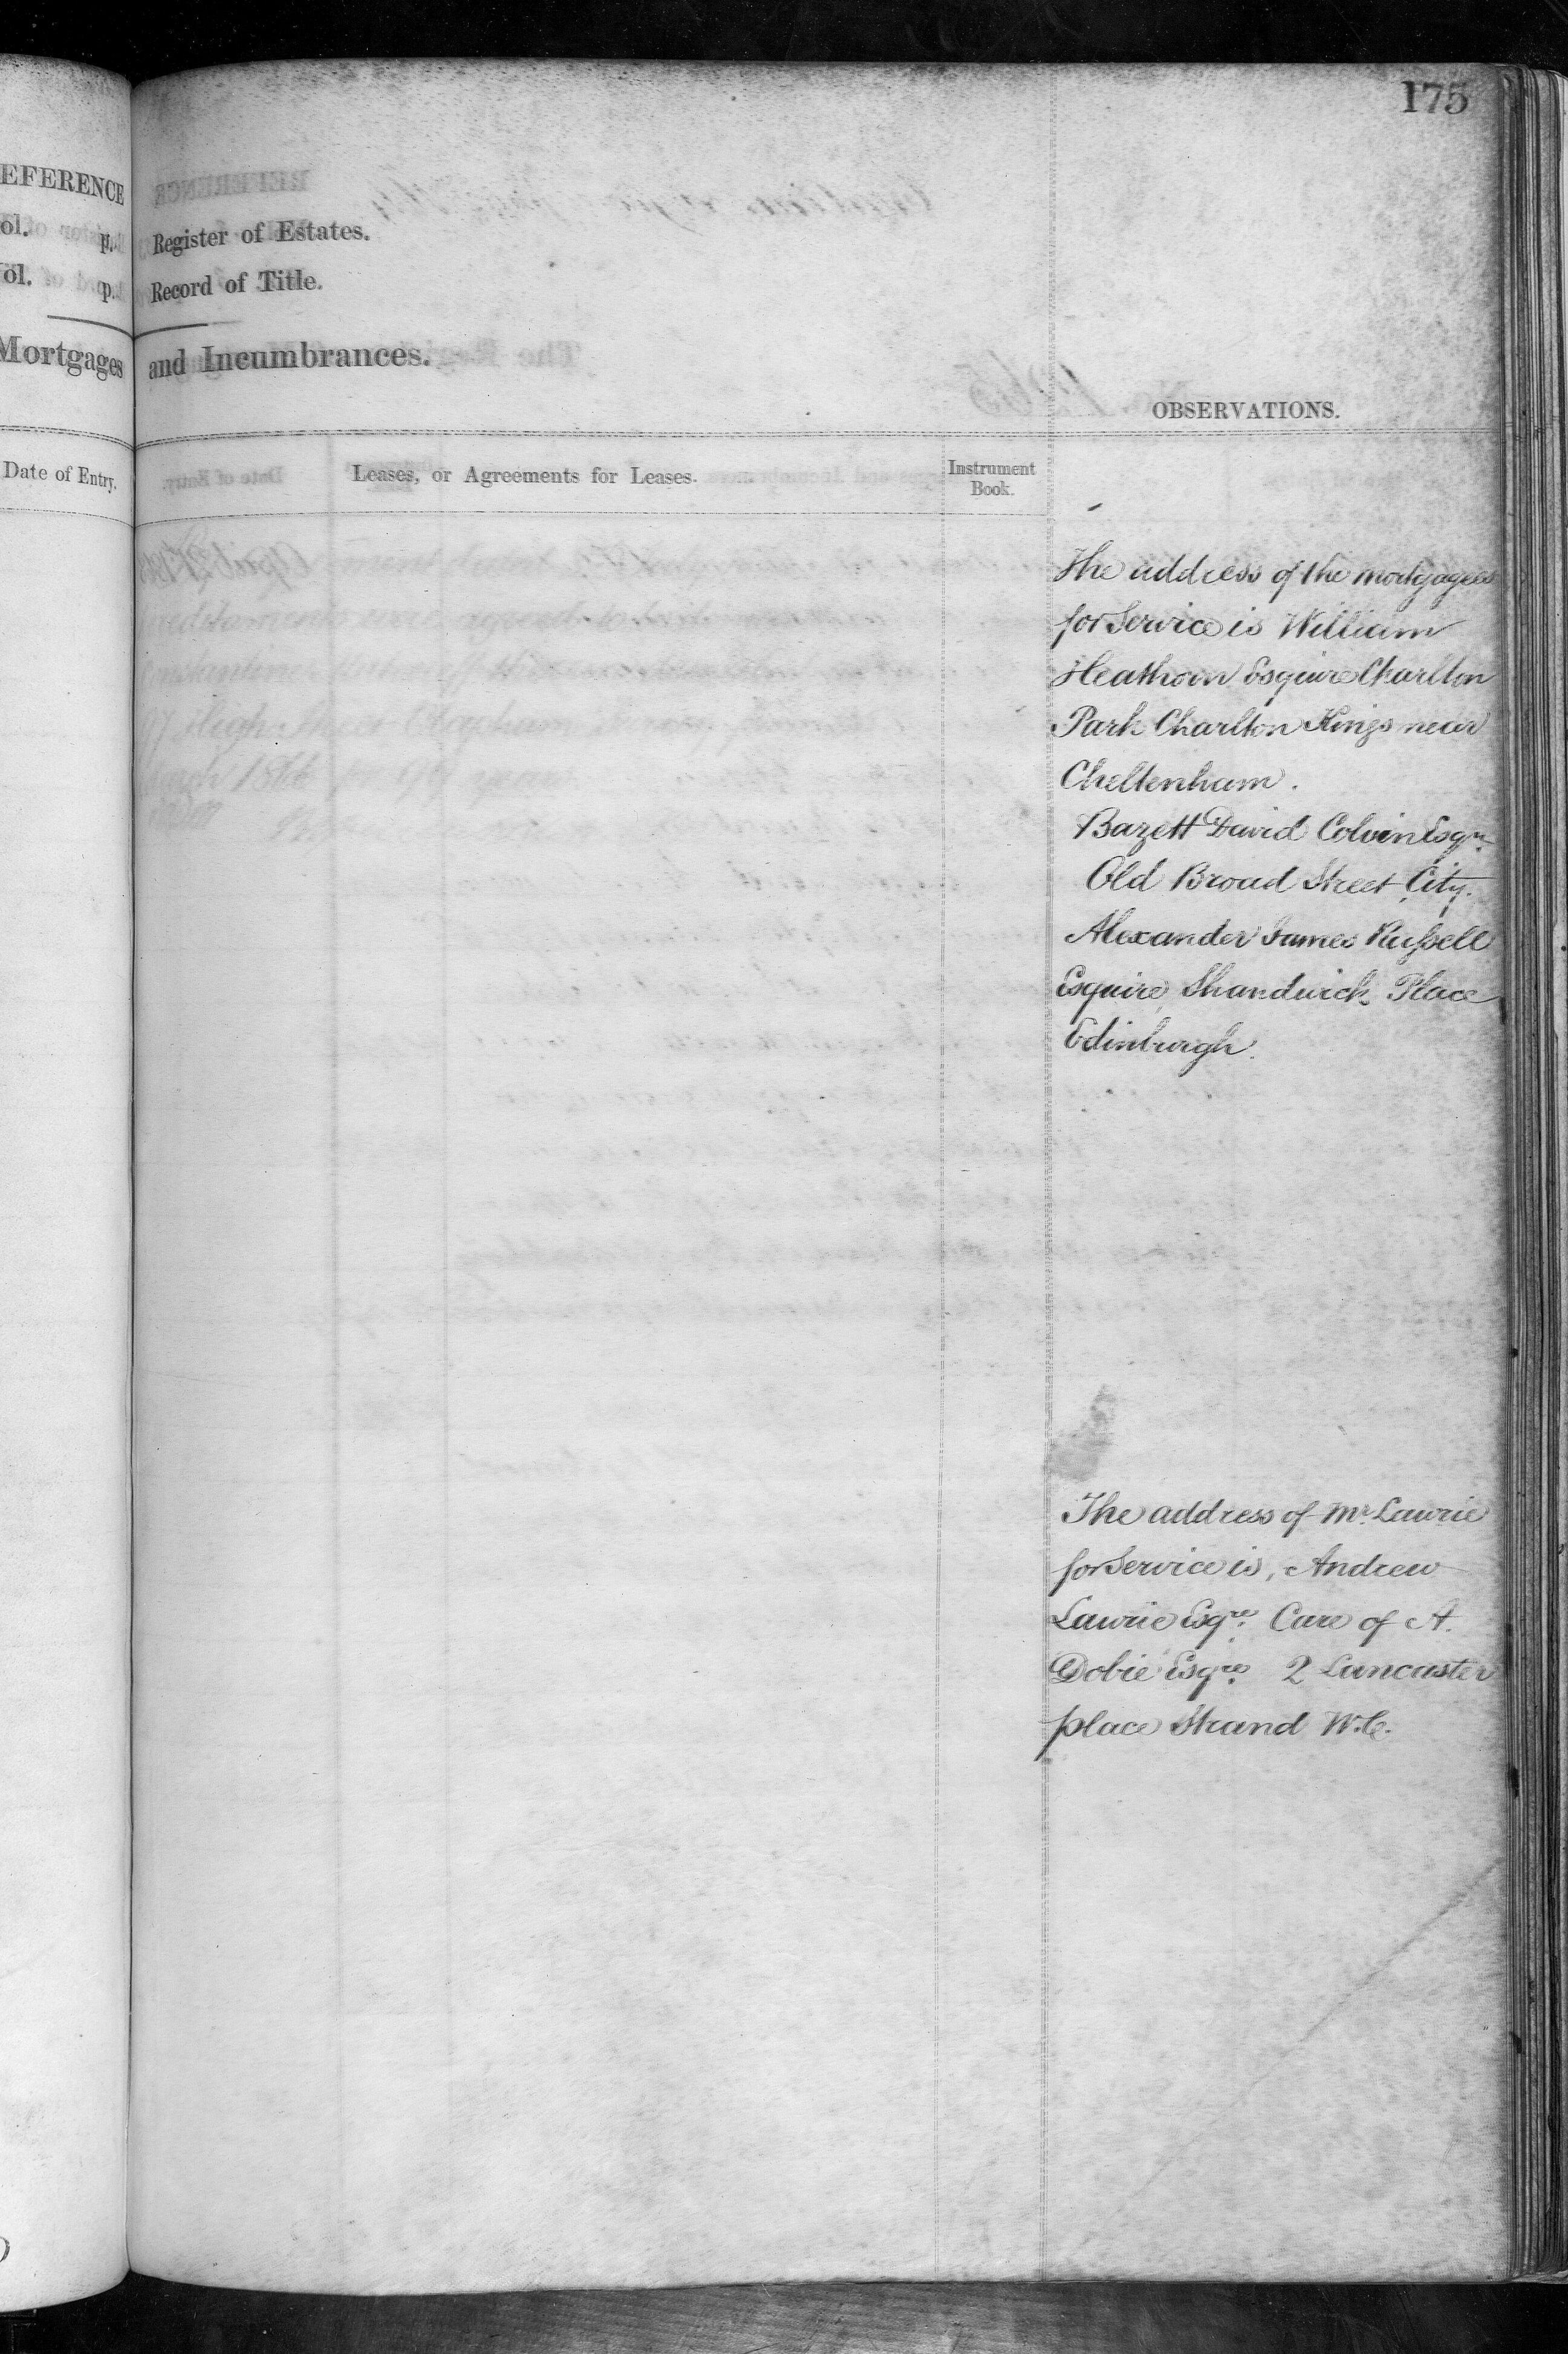 175
EFERENCE
ol. p.
ol. p.
Mortgages
Date of Entry.
Register of Estates.
Record of Title.
and Incumbrances.
OBSERVATIONS.
Leases, or Agreements for Leases.
Instrument
Book.
The address of the mortgagees
for Service is William
Heathorn Esquire Charlton
Park Charlton Kings near
Cheltenham.
Bazett David Colvin Esqre
Old Broad Street City.
Alexander James Russell
Esquire Shandwick Place
Edinburgh.
The address of Mr. Lawrie
for Service is, Andrew
Lawrie Esqre. Care of A.
Dobie Esqre. 2 Lancaster
place Strand W.C.